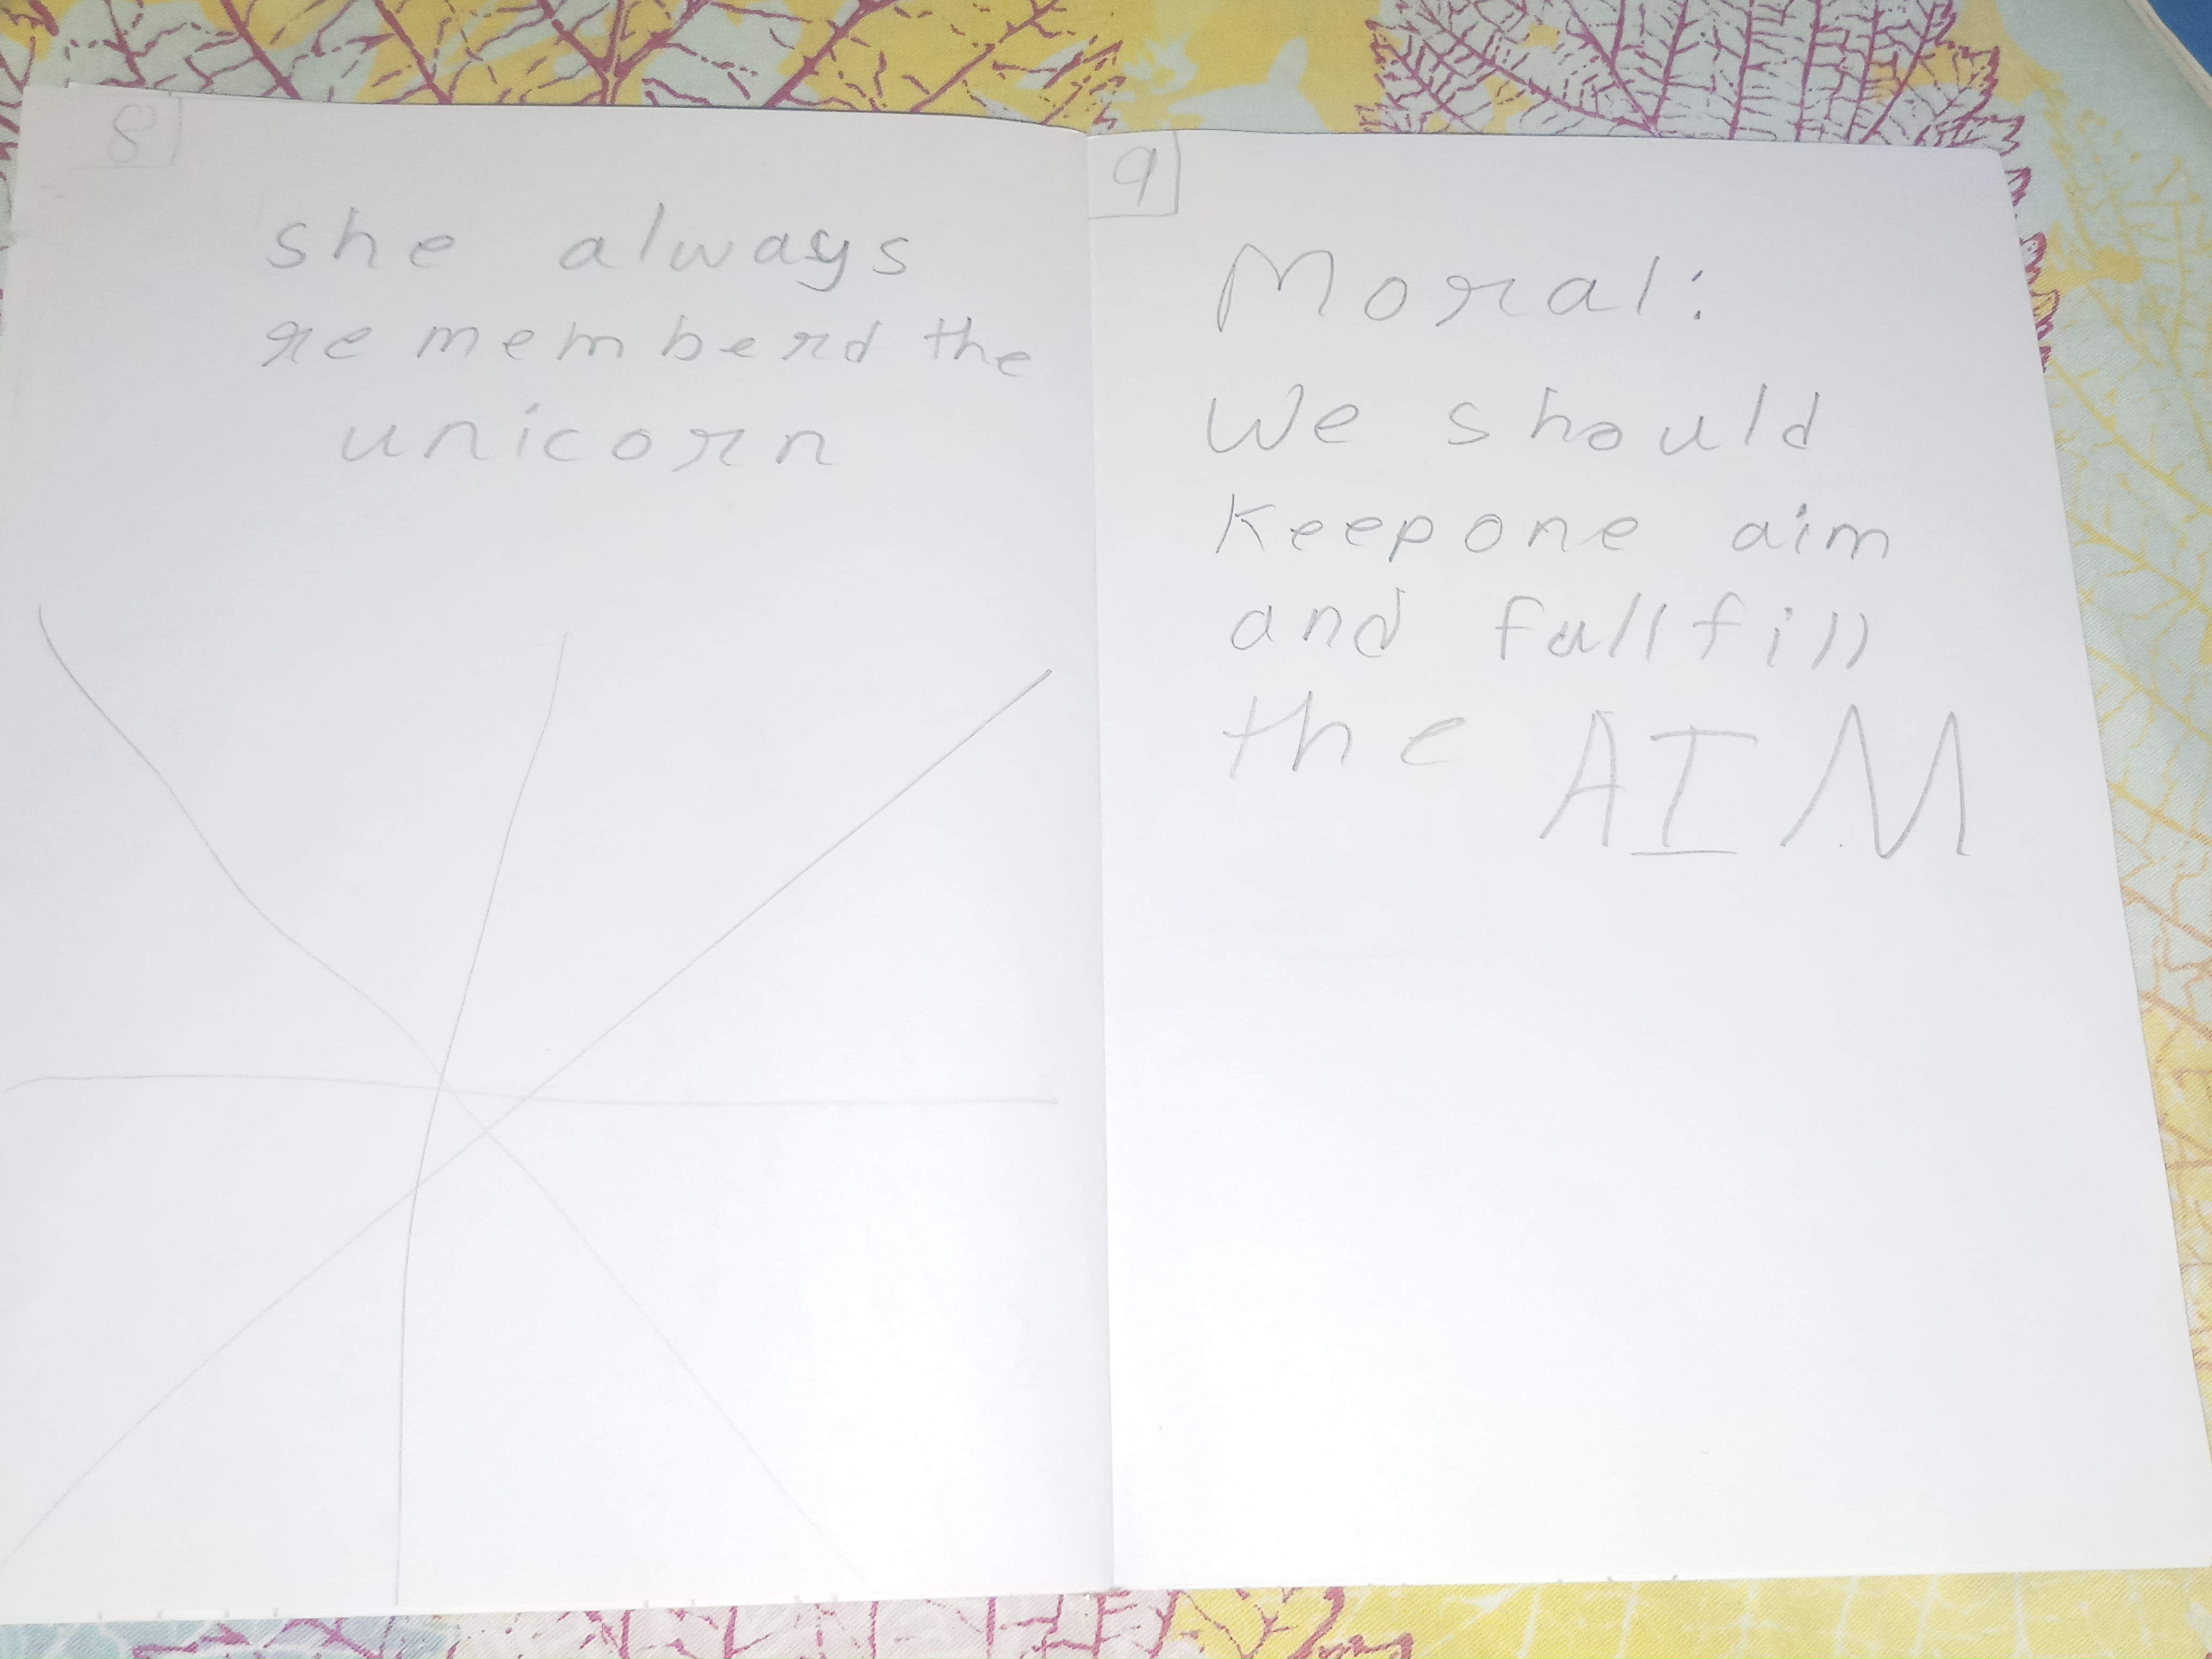 8
she always
re memberd the
unicorn
9
Moral:
We should
Keep one aim
and fullfill
the AIM